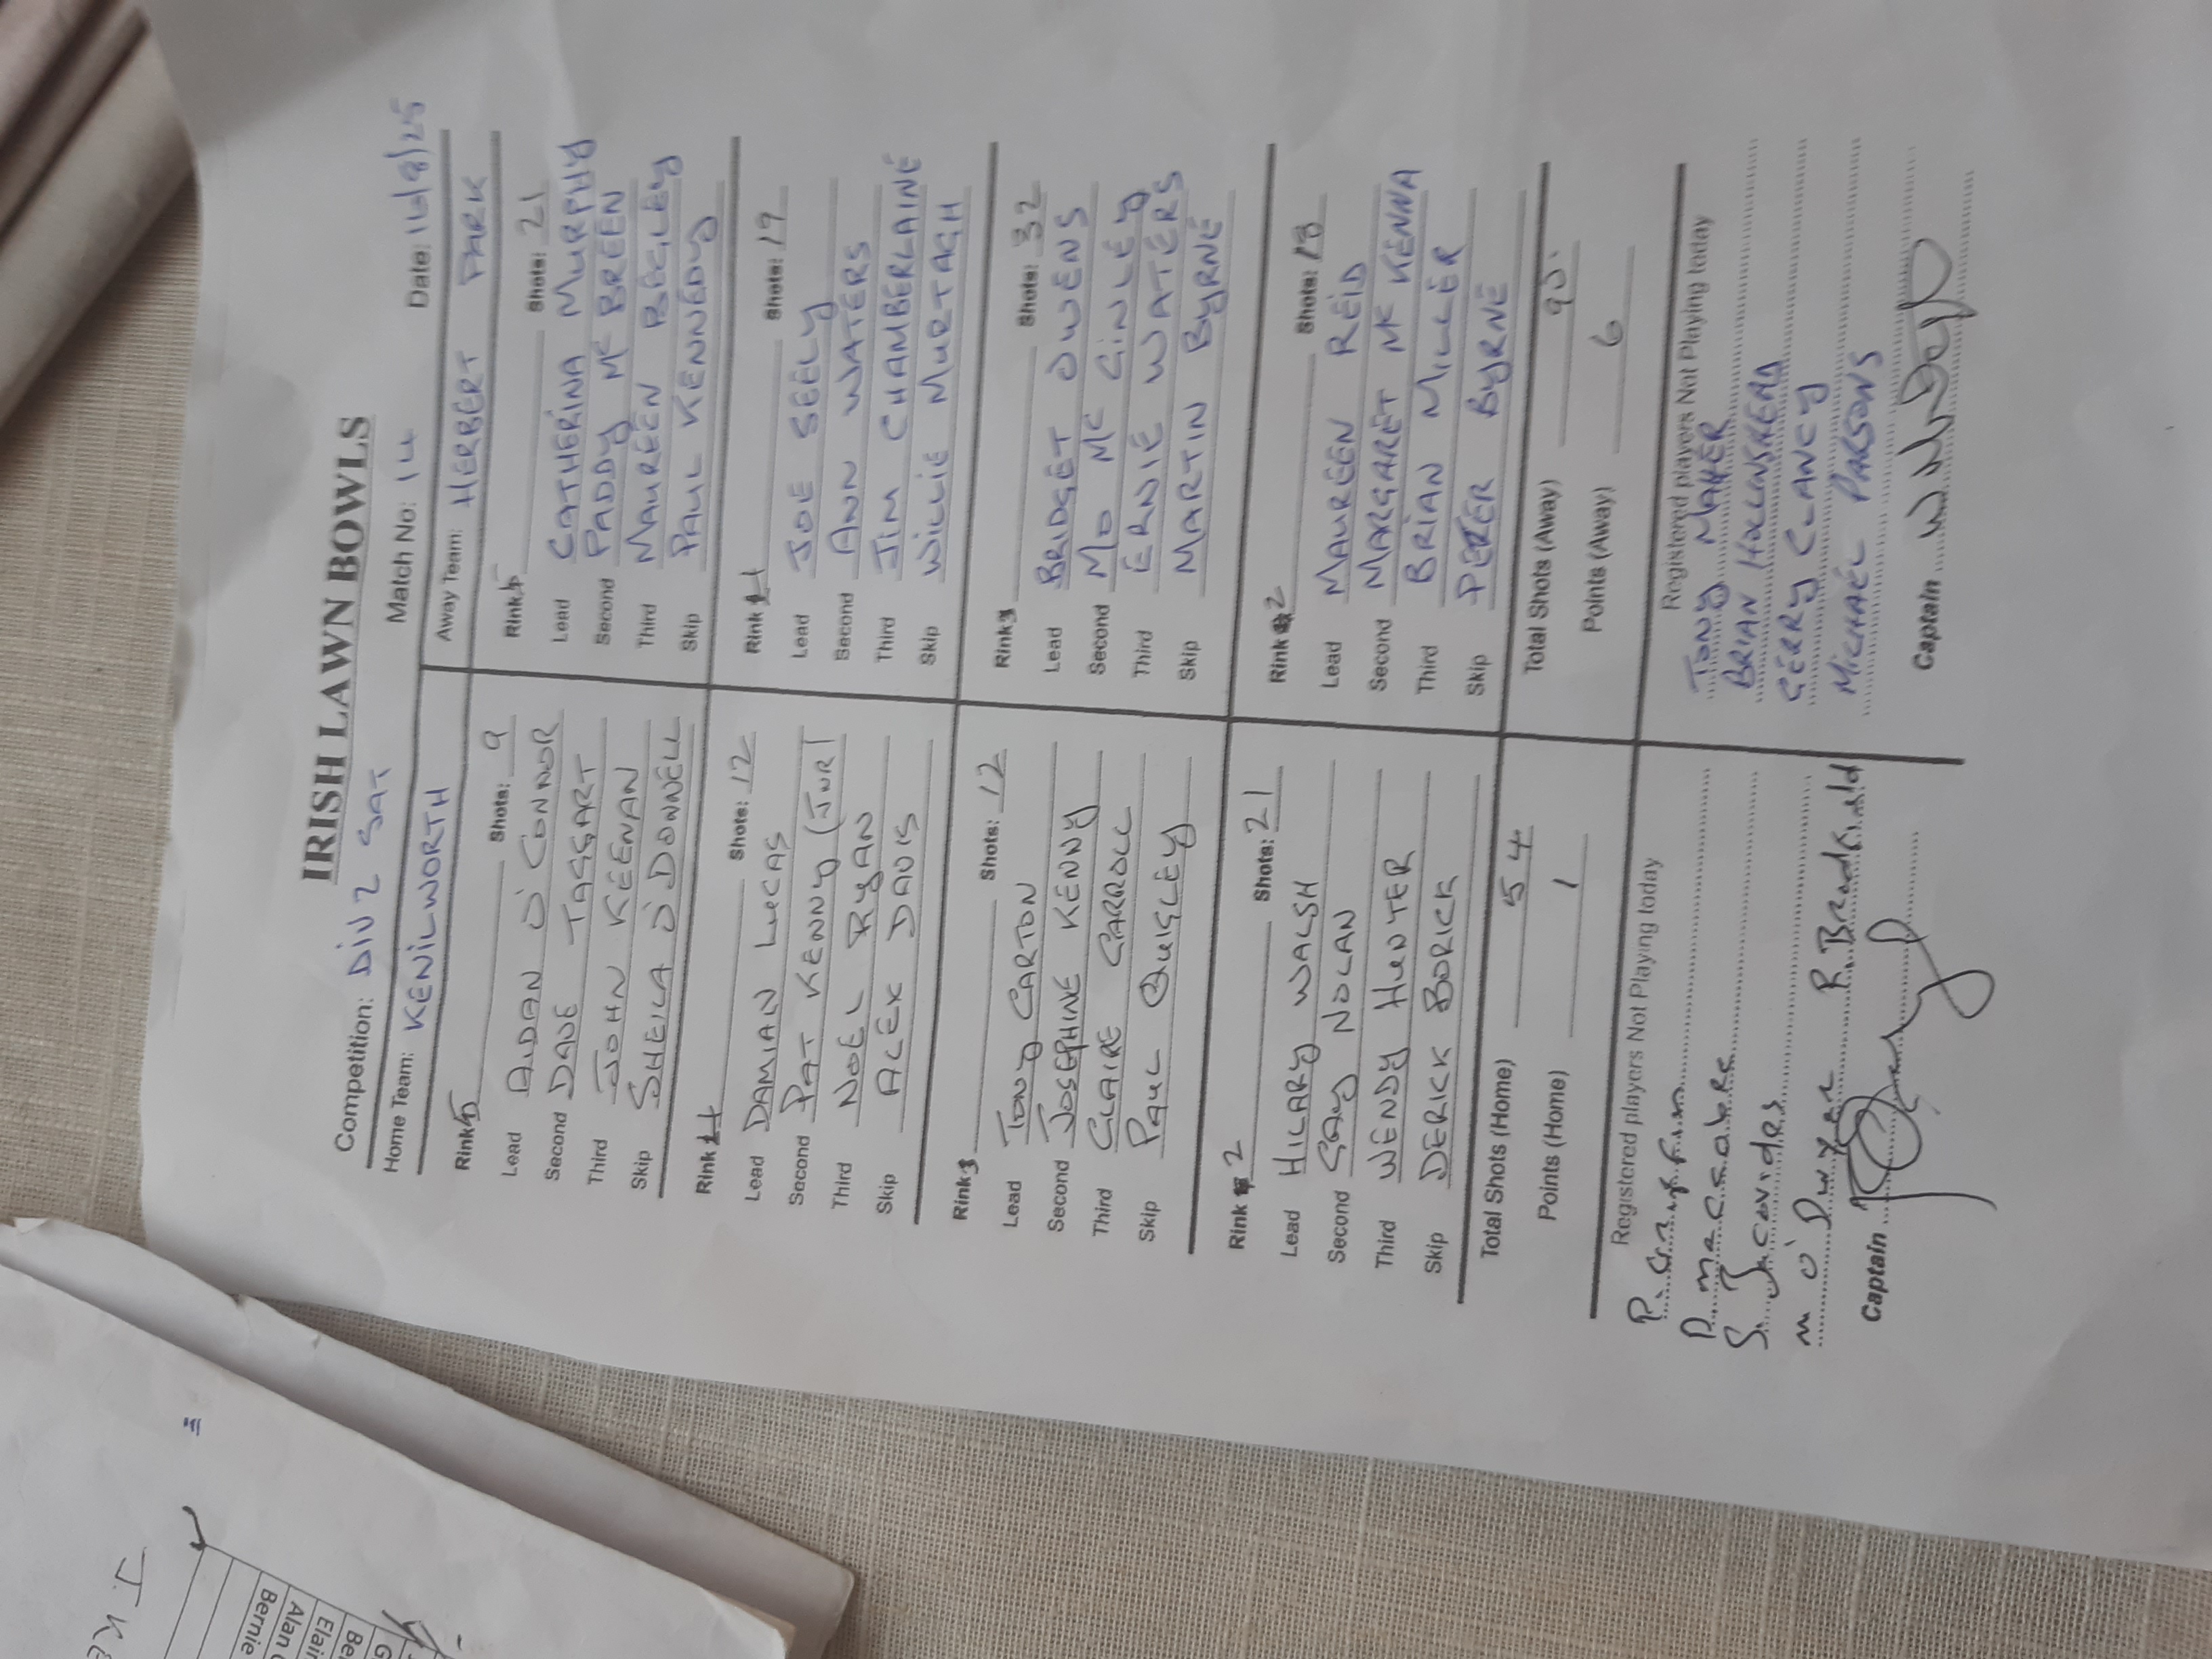 IRISH LAWN BOWLS
Competition: DIV 2 SAT Match No: 14 Date: 16/8/25
Home Team: KENILWORTH Away Team: HERBERT PARK
Rink 5 Shots: 9
Lead AIDAN O'CONNOR
Second DAVE TAGGART
Third JOHN KEENAN
Skip SHEILA O'DONNELL
Rink 5 Shots: 21
Lead CATHERINA MURPHY
Second PADDY Mc BREEN
Third MAUREEN BEGLEY
Skip PAUL KENNEDY
Rink 4 Shots: 12
Lead DAMIAN LUCAS
Second PAT KENNY (JNR)
Third NOEL RYAN
Skip ALEK DAVIS
Rink 4 Shots: 19
Lead JOE SEELY
Second ANN WATERS
Third JIM CHAMBERLAINE
Skip WILLIE MURTAGH
Rink 3 Shots: 12
Lead TONY CARTON
Second JOSEPHINE KENNY
Third CLAIRE CARROLL
Skip PAUL QUIGLEY
Rink 3 Shots: 32
Lead BRIDGET OWENS
Second MO Mc GINLEY
Third ERNIE WATERS
Skip MARTIN BYRNE
Rink 2 Shots: 21
Lead HILARY WALSH
Second GAY NOLAN
Third WENDY HUNTER
Skip DERICK BORICK
Rink 2 Shots: 18
Lead MAUREEN REID
Second MARGARET Mc KENNA
Third BRIAN MILLER
Skip PETER BYRNE
Total Shots (Home) 54 Total Shots (Away) 90
Points (Home) 1 Points (Away) 6
Registered players Not Playing today
P.
P. MacCabe
S.
M O'Dwyer R.
Captain
Registered players Not Playing today
TONY MAHER
BRIAN HOLLINSHEAD
GERRY CLANCY
MICHAEL PARSONS
Captain
J.
Bernie
Alan